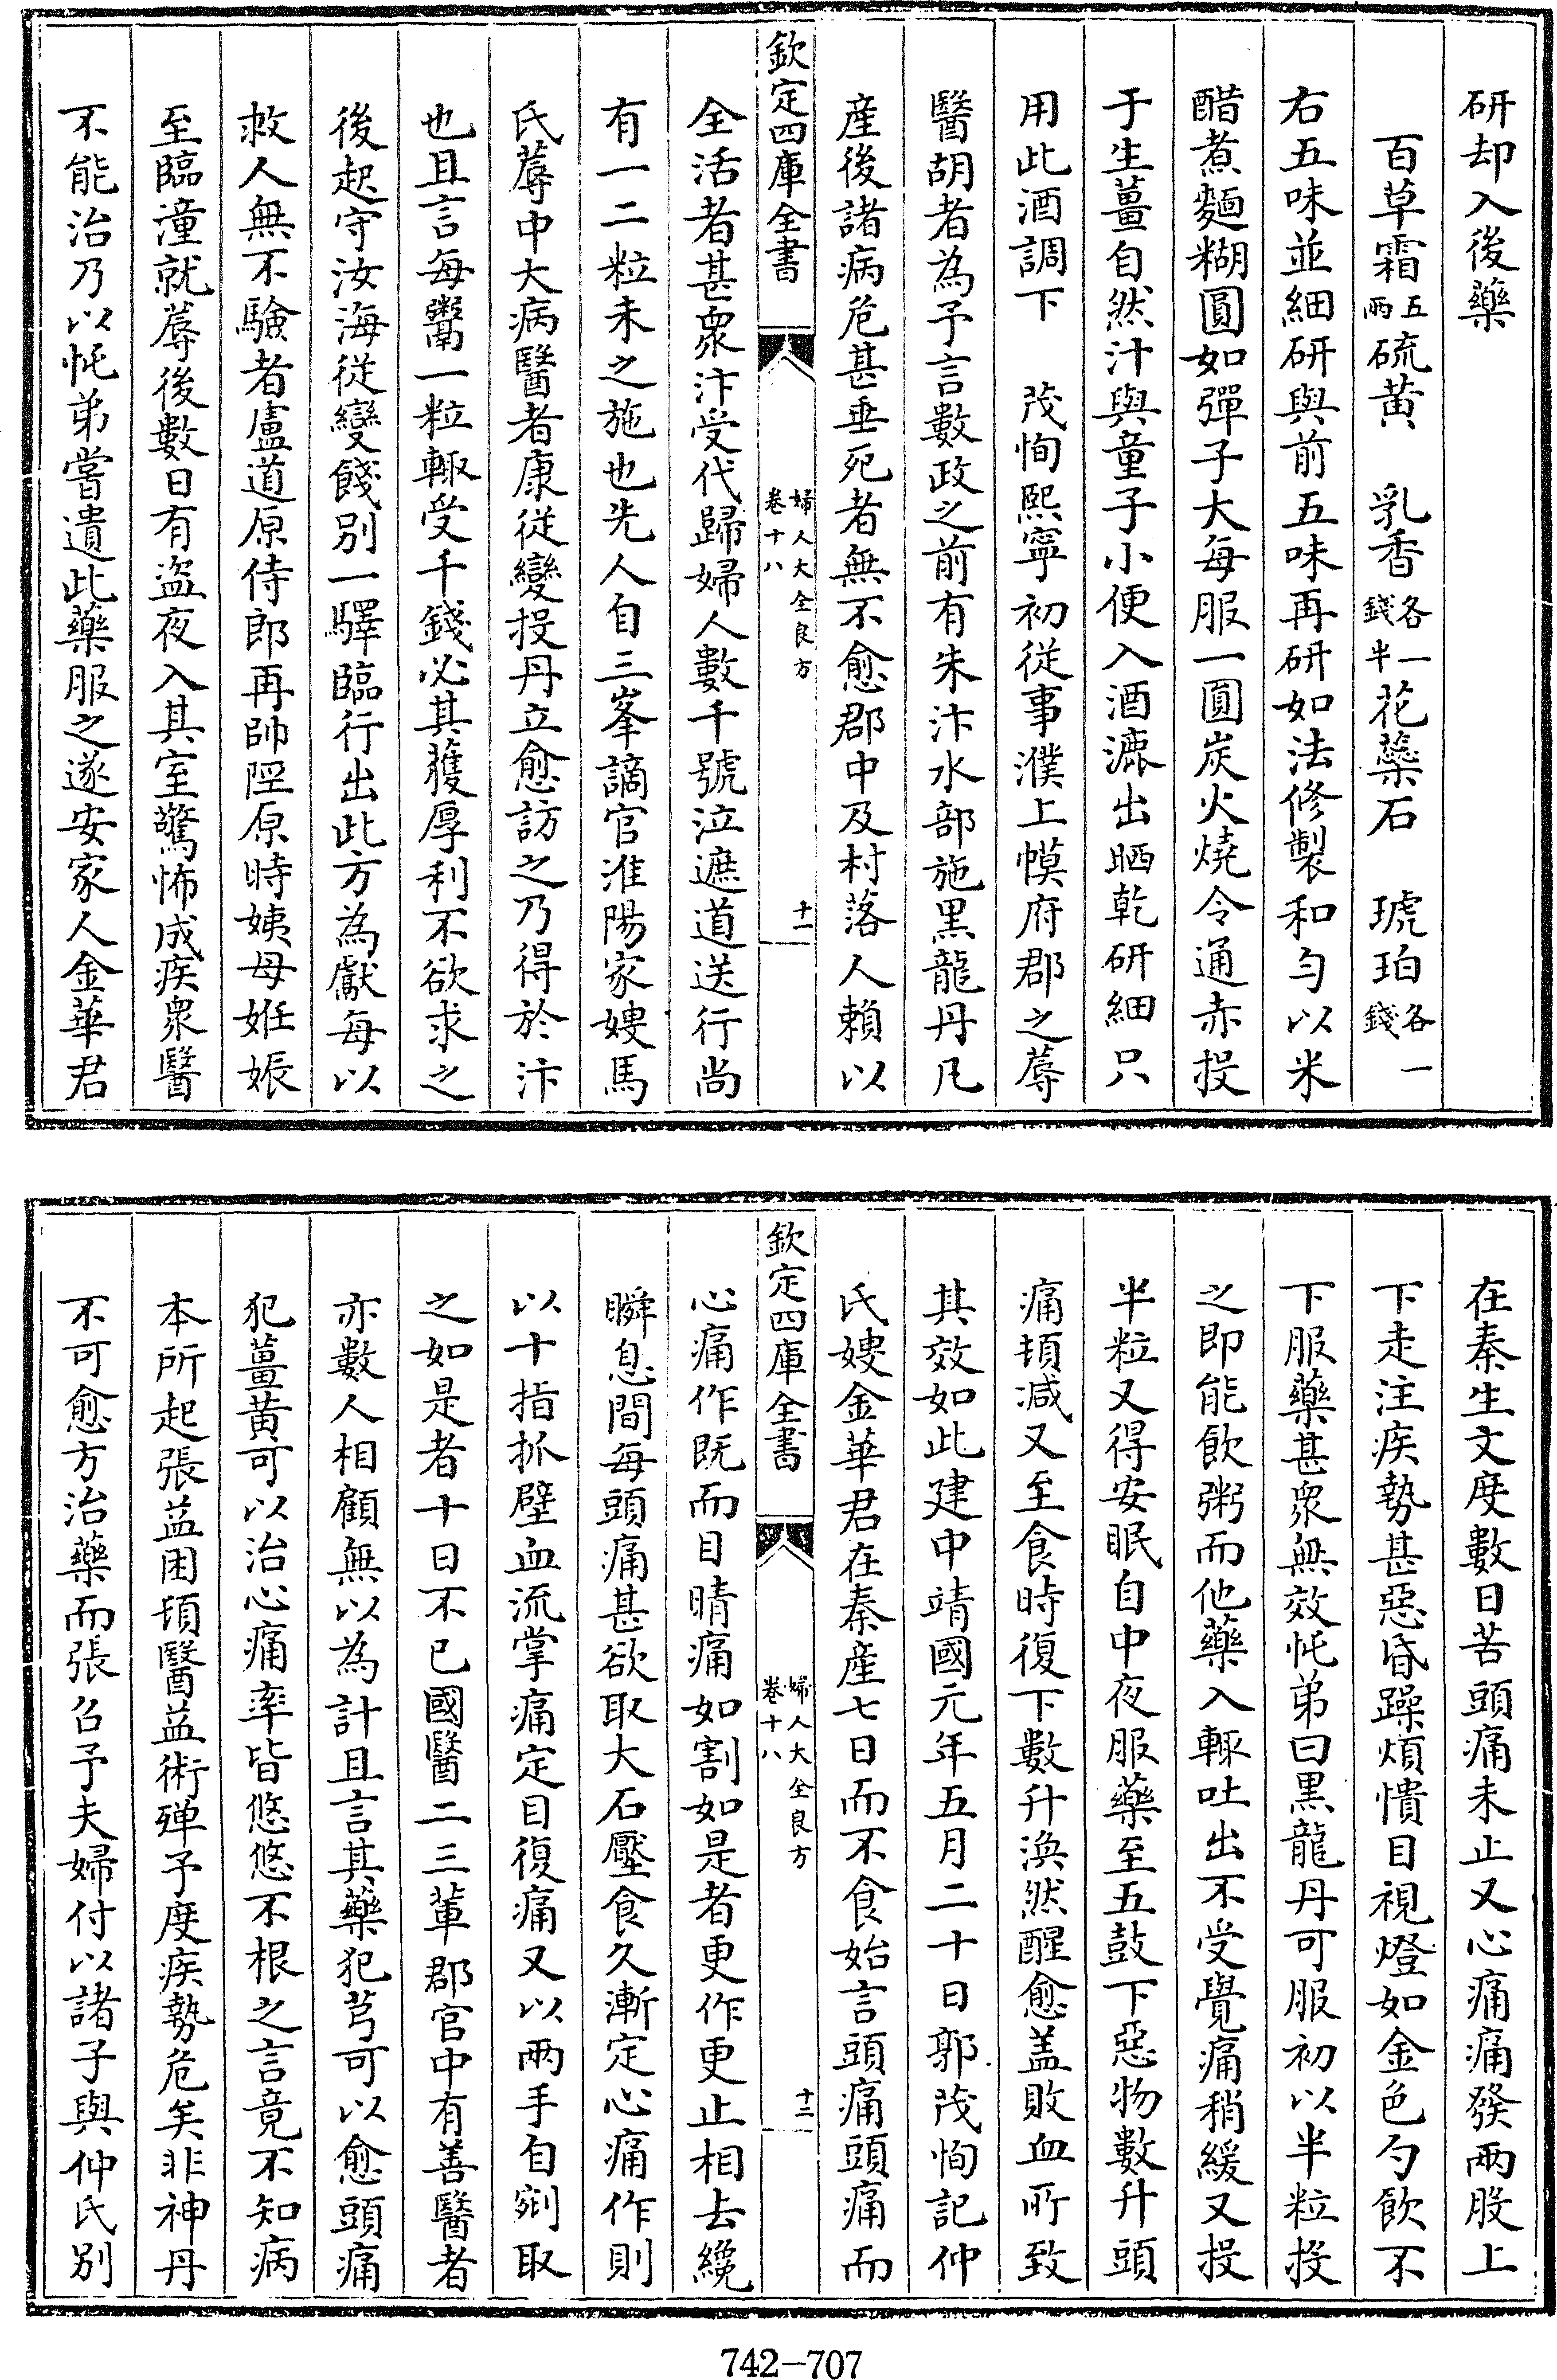 研却入後藥
百草霜五兩硫黄　乳香各一錢半花蘂石　琥珀各一錢
右五味並細研與前五味再研如法修製和勻以米
醋煮麵糊圓如彈子大每服一圓炭火燒令通赤投
于生薑自然汁與童子小便入酒漉出晒乾研細只
用此酒調下　茂恂熙寧初從事濮上幙府郡之蓐
醫胡者為予言數政之前有朱汴水部施黒龍丹凡
産後諸病危甚垂死者無不愈郡中及村落人賴以
欽定四庫全書
婦人大全良方
卷十八
十一
全活者甚衆汴受代歸婦人數千號泣遮道送行尚
有一二粒未之施也先人自三峯謫官淮陽家嫂馬
氏蓐中大病醫者康從變投丹立愈訪之乃得於汴
也且言每鬻一粒輙受千錢必其獲厚利不欲求之
後起守汝海從變餞别一驛臨行出此方為獻每以
救人無不驗者盧道原侍郎再帥陘原時姨母姙娠
至臨潼就蓐後數日有盗夜入其室驚怖成疾衆醫
不能治乃以恱弟嘗遺此藥服之遂安家人金華君
在秦生文度數日苦頭痛未止又心痛痛發兩股上
下走注疾勢甚惡昏躁煩憒目視燈如金色勺飲不
下服藥甚衆無效恱弟曰黒龍丹可服初以半粒投
之即能飲粥而他藥入輙吐出不受覺痛稍緩又投
半粒又得安眠自中夜服藥至五鼓下惡物數升頭
痛頓減又至食時復下數升渙然醒愈盖敗血所致
其效如此建中靖國元年五月二十日郭茂恂記仲
氏嫂金華君在秦産七日而不食始言頭痛頭痛而
欽定四庫全書
婦人大全良方
卷十八
十二
心痛作既而目睛痛如割如是者更作更止相去纔
瞬息間每頭痛甚欲取大石壓食久漸定心痛作則
以十指抓壁血流掌痛定目復痛又以兩手自剜取
之如是者十日不已國醫二三輩郡官中有善醫者
亦數人相顧無以為計且言其藥犯芎可以愈頭痛
犯薑黄可以治心痛率皆悠悠不根之言竟不知病
本所起張益困頓醫益術殫予度疾勢危矣非神丹
不可愈方治藥而張召予夫婦付以諸子與仲氏别
742-707